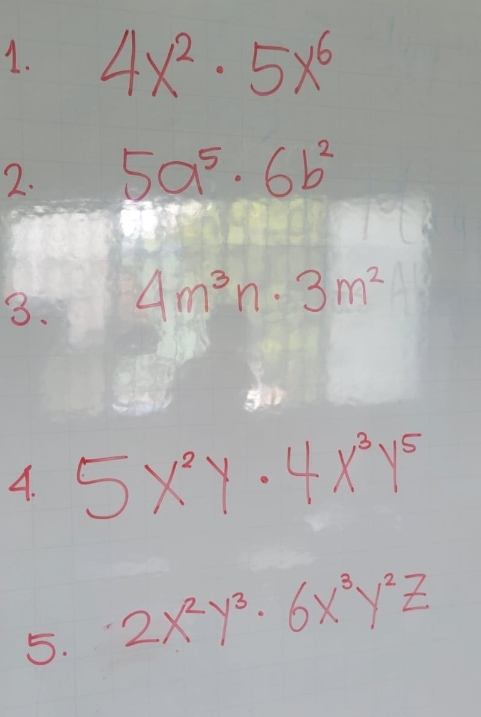 1. 4x² · 5x⁶
2. 5a⁵ · 6b²
3. 4m³n · 3m²
4. 5x²y · 4x³y⁵
5. 2x²y³ · 6x³y²z